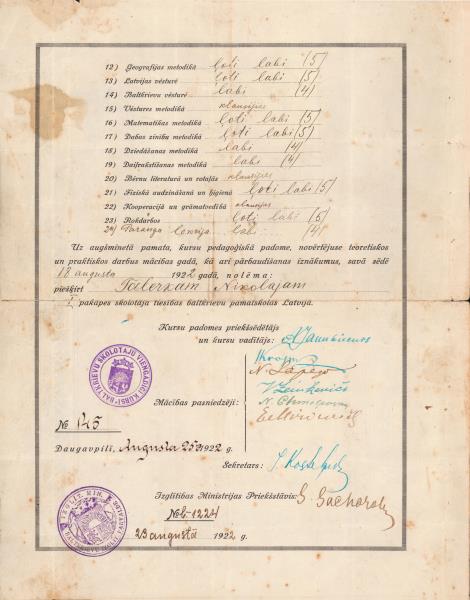 12) Ģeografijas metodikā ļoti labi (5)
13) Latvijas vēsturē ļoti labi (5)
14) Baltkrievu vēsturē labi (4)
15) Vēstures metodikā klausījies
16) Matematikas metodikā ļoti labi (5)
17) Dabas zinību metodikā ļoti labi (5)
18) Dziedāšanas metodikā labi (4)
19) Daiļrakstīšanas metodikā labi (4)
20) Bērnu literaturā un rotaļās klausījies
21) Fiziskā audzināšanā un higienā ļoti labi (5)
22) Kooperacijā un grāmatvedībā klausījies
23) Rokdarbos ļoti labi (5)
24) labi (4)
Uz augšminētā pamata, kursu pedagoģiskā padome, novērtējuse teoretiskos
un praktiskos darbus mācības gadā, kā arī pārbaudīšanas iznākumus, savā sēdē
18 augusta 1922 gadā, nolēma:
piešķirt Nikolajam
I pakāpes skolotāja tiesības baltkrievu pamatskolās Latvijā.
Kursu padomes priekšsēdētājs
un kursu vadītājs:
BALTKRIEVU SKOLOTĀJU VIENGADĪGI KURSI
Mācības pasniedzēji:
№ 145
Daugavpilī, Augusta 25 1922 g.
Sekretars:
Izglītības Ministrijas Priekšstāvis:
№ 1224
23 augustā 1922 g.